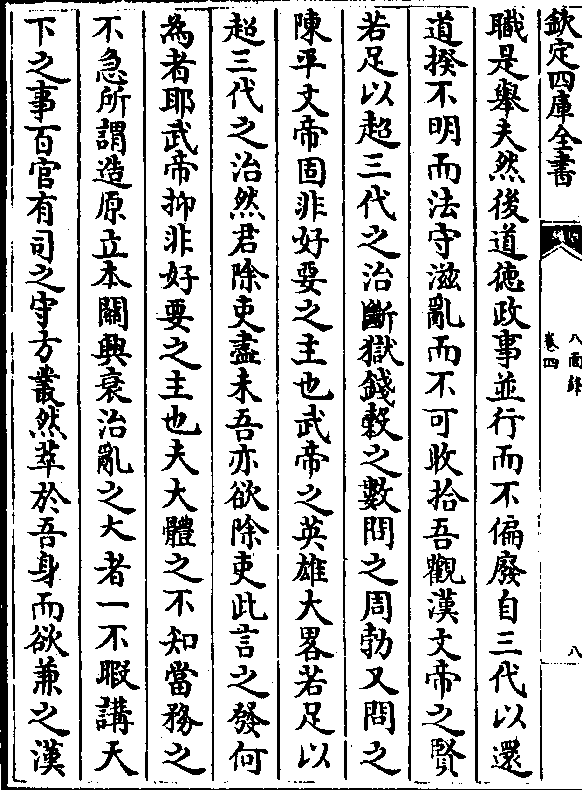 欽定四庫全書
八面鋒
卷四
八
職是舉夫然後道徳政事並行而不偏廢自三代以還
道揆不明而法守滋亂而不可收拾吾觀漢文帝之賢
若足以超三代之治斷獄錢穀之數問之周勃又問之
陳平文帝固非好要之主也武帝之英雄大畧若足以
超三代之治然君除吏盡未吾亦欲除吏此言之發何
為者耶武帝抑非好要之主也夫大體之不知當務之
不急所謂造原立本關興衰治亂之大者一不暇講天
下之事百官有司之守方叢然萃於吾身而欲兼之漢